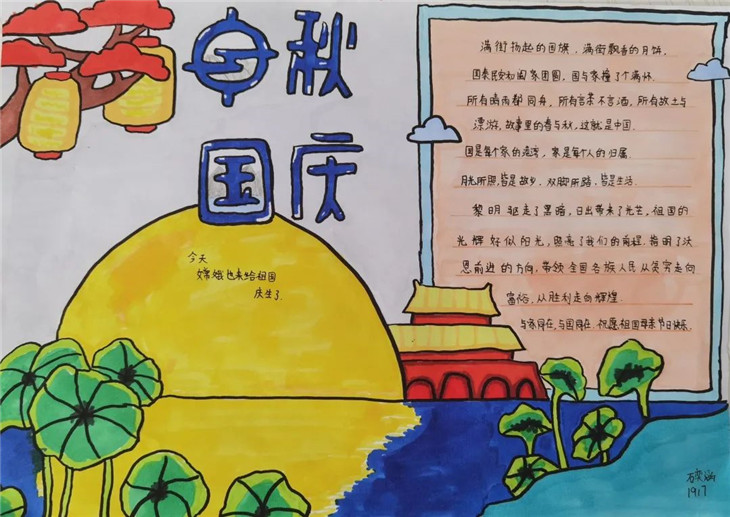 中秋
国庆
今天
嫦娥也来给祖国
庆生了
满街扬起的国旗，满街飘香的月饼。
国泰民安和阖家团圆，国与家撞了个满怀。
所有晴雨都同舟，所有言笑不言酒，所有故土与
漂游，故事里的春与秋，这就是中国
国是每个家的港湾，家是每个人的归属
月光所照，皆是故乡，双脚所踏，皆是生活
黎明驱走了黑暗，日出带来了光芒，祖国的
光辉好似阳光，照亮了我们的前程，指明了
前进的方向，带领全国各族人民从贫穷走向
富裕，从胜利走向辉煌
与家同在，与国同在，祝愿祖国母亲节日快乐
1917